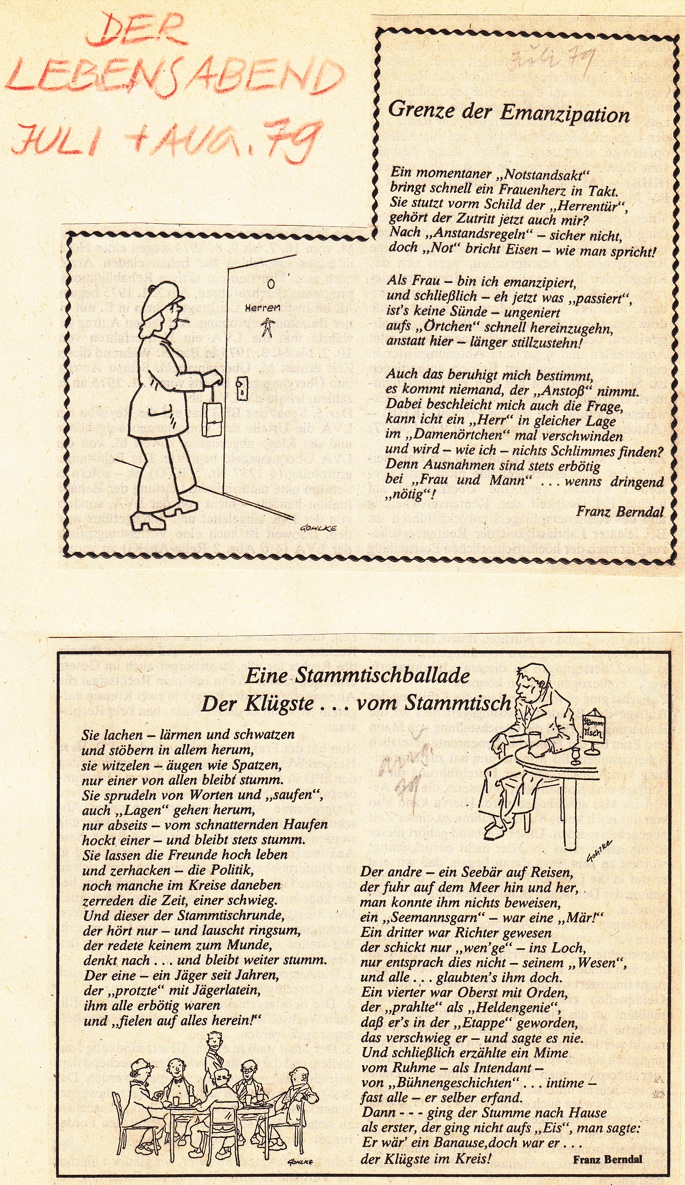 DER
LEBENSABEND
JULI + AUG. 79
Juli 79
Grenze der Emanzipation
Ein momentaner „Notstandsakt“
bringt schnell ein Frauenherz in Takt.
Sie stutzt vorm Schild der „Herrentür“,
gehört der Zutritt jetzt auch mir?
Nach „Anstandsregeln“ – sicher nicht,
doch „Not“ bricht Eisen – wie man spricht!
Als Frau – bin ich emanzipiert,
und schließlich – eh jetzt was „passiert“,
ist's keine Sünde – ungeniert
aufs „Örtchen“ schnell hereinzugehn,
anstatt hier – länger stillzustehn!
Auch das beruhigt mich bestimmt,
es kommt niemand, der „Anstoß“ nimmt.
Dabei beschleicht mich auch die Frage,
kann icht ein „Herr“ in gleicher Lage
im „Damenörtchen“ mal verschwinden
und wird – wie ich – nichts Schlimmes finden?
Denn Ausnahmen sind stets erbötig
bei „Frau und Mann“ . . . wenns dringend
„nötig“!
Franz Berndal
O
Herren
GOHLKE
Eine Stammtischballade
Der Klügste . . . vom Stammtisch
Sie lachen – lärmen und schwatzen
und stöbern in allem herum,
sie witzelen – äugen wie Spatzen,
nur einer von allen bleibt stumm.
Sie sprudeln von Worten und „saufen“,
auch „Lagen“ gehen herum,
nur abseits – vom schnatternden Haufen
hockt einer – und bleibt stets stumm.
Sie lassen die Freunde hoch leben
und zerhacken – die Politik,
noch manche im Kreise daneben
zerreden die Zeit, einer schwieg.
Und dieser der Stammtischrunde,
der hört nur – und lauscht ringsum,
der redete keinem zum Munde,
denkt nach . . . und bleibt weiter stumm.
Der eine – ein Jäger seit Jahren,
der „protzte“ mit Jägerlatein,
ihm alle erbötig waren
und „fielen auf alles herein!“
GOHLKE
Aug.
79
Stamm
Tisch
Gohlke
Der andre – ein Seebär auf Reisen,
der fuhr auf dem Meer hin und her,
man konnte ihm nichts beweisen,
ein „Seemannsgarn“ – war eine „Mär!“
Ein dritter war Richter gewesen
der schickt nur „wen'ge“ – ins Loch,
nur entsprach dies nicht – seinem „Wesen“,
und alle . . . glaubten's ihm doch.
Ein vierter war Oberst mit Orden,
der „prahlte“ als „Heldengenie“,
daß er's in der „Etappe“ geworden,
das verschwieg er – und sagte es nie.
Und schließlich erzählte ein Mime
vom Ruhme – als Intendant –
von „Bühnengeschichten“ . . . intime –
fast alle – er selber erfand.
Dann - - - ging der Stumme nach Hause
als erster, der ging nicht aufs „Eis“, man sagte:
Er wär' ein Banause,doch war er . . .
der Klügste im Kreis!
Franz Berndal